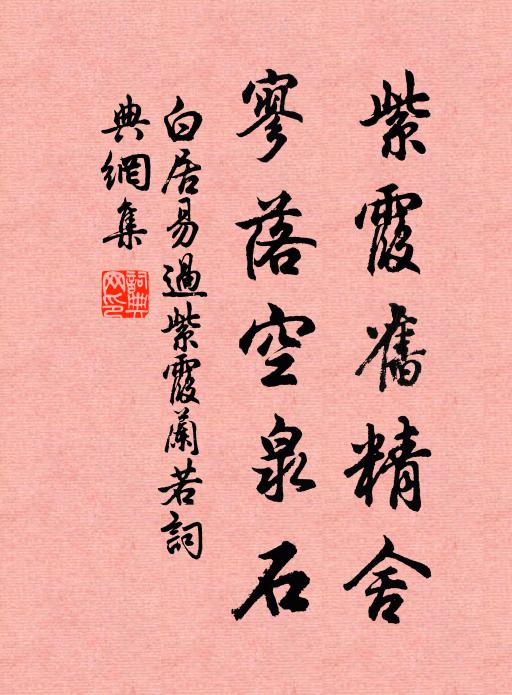 紫霞舊精舍
寥落空泉石
白居易過紫霞蘭若詞
典網集
詞典网印